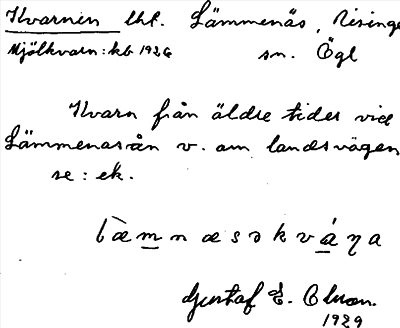 Kvarnen lht. Lämmenäs, Risinge
Mjölkvarn: kb 1926 sn. Ögl
Kvarn från äldre tider vid
Lämmenasån v. om landsvägen
se: ek.
læmnæsəkváŋa
Gustaf E. Olsson.
1929